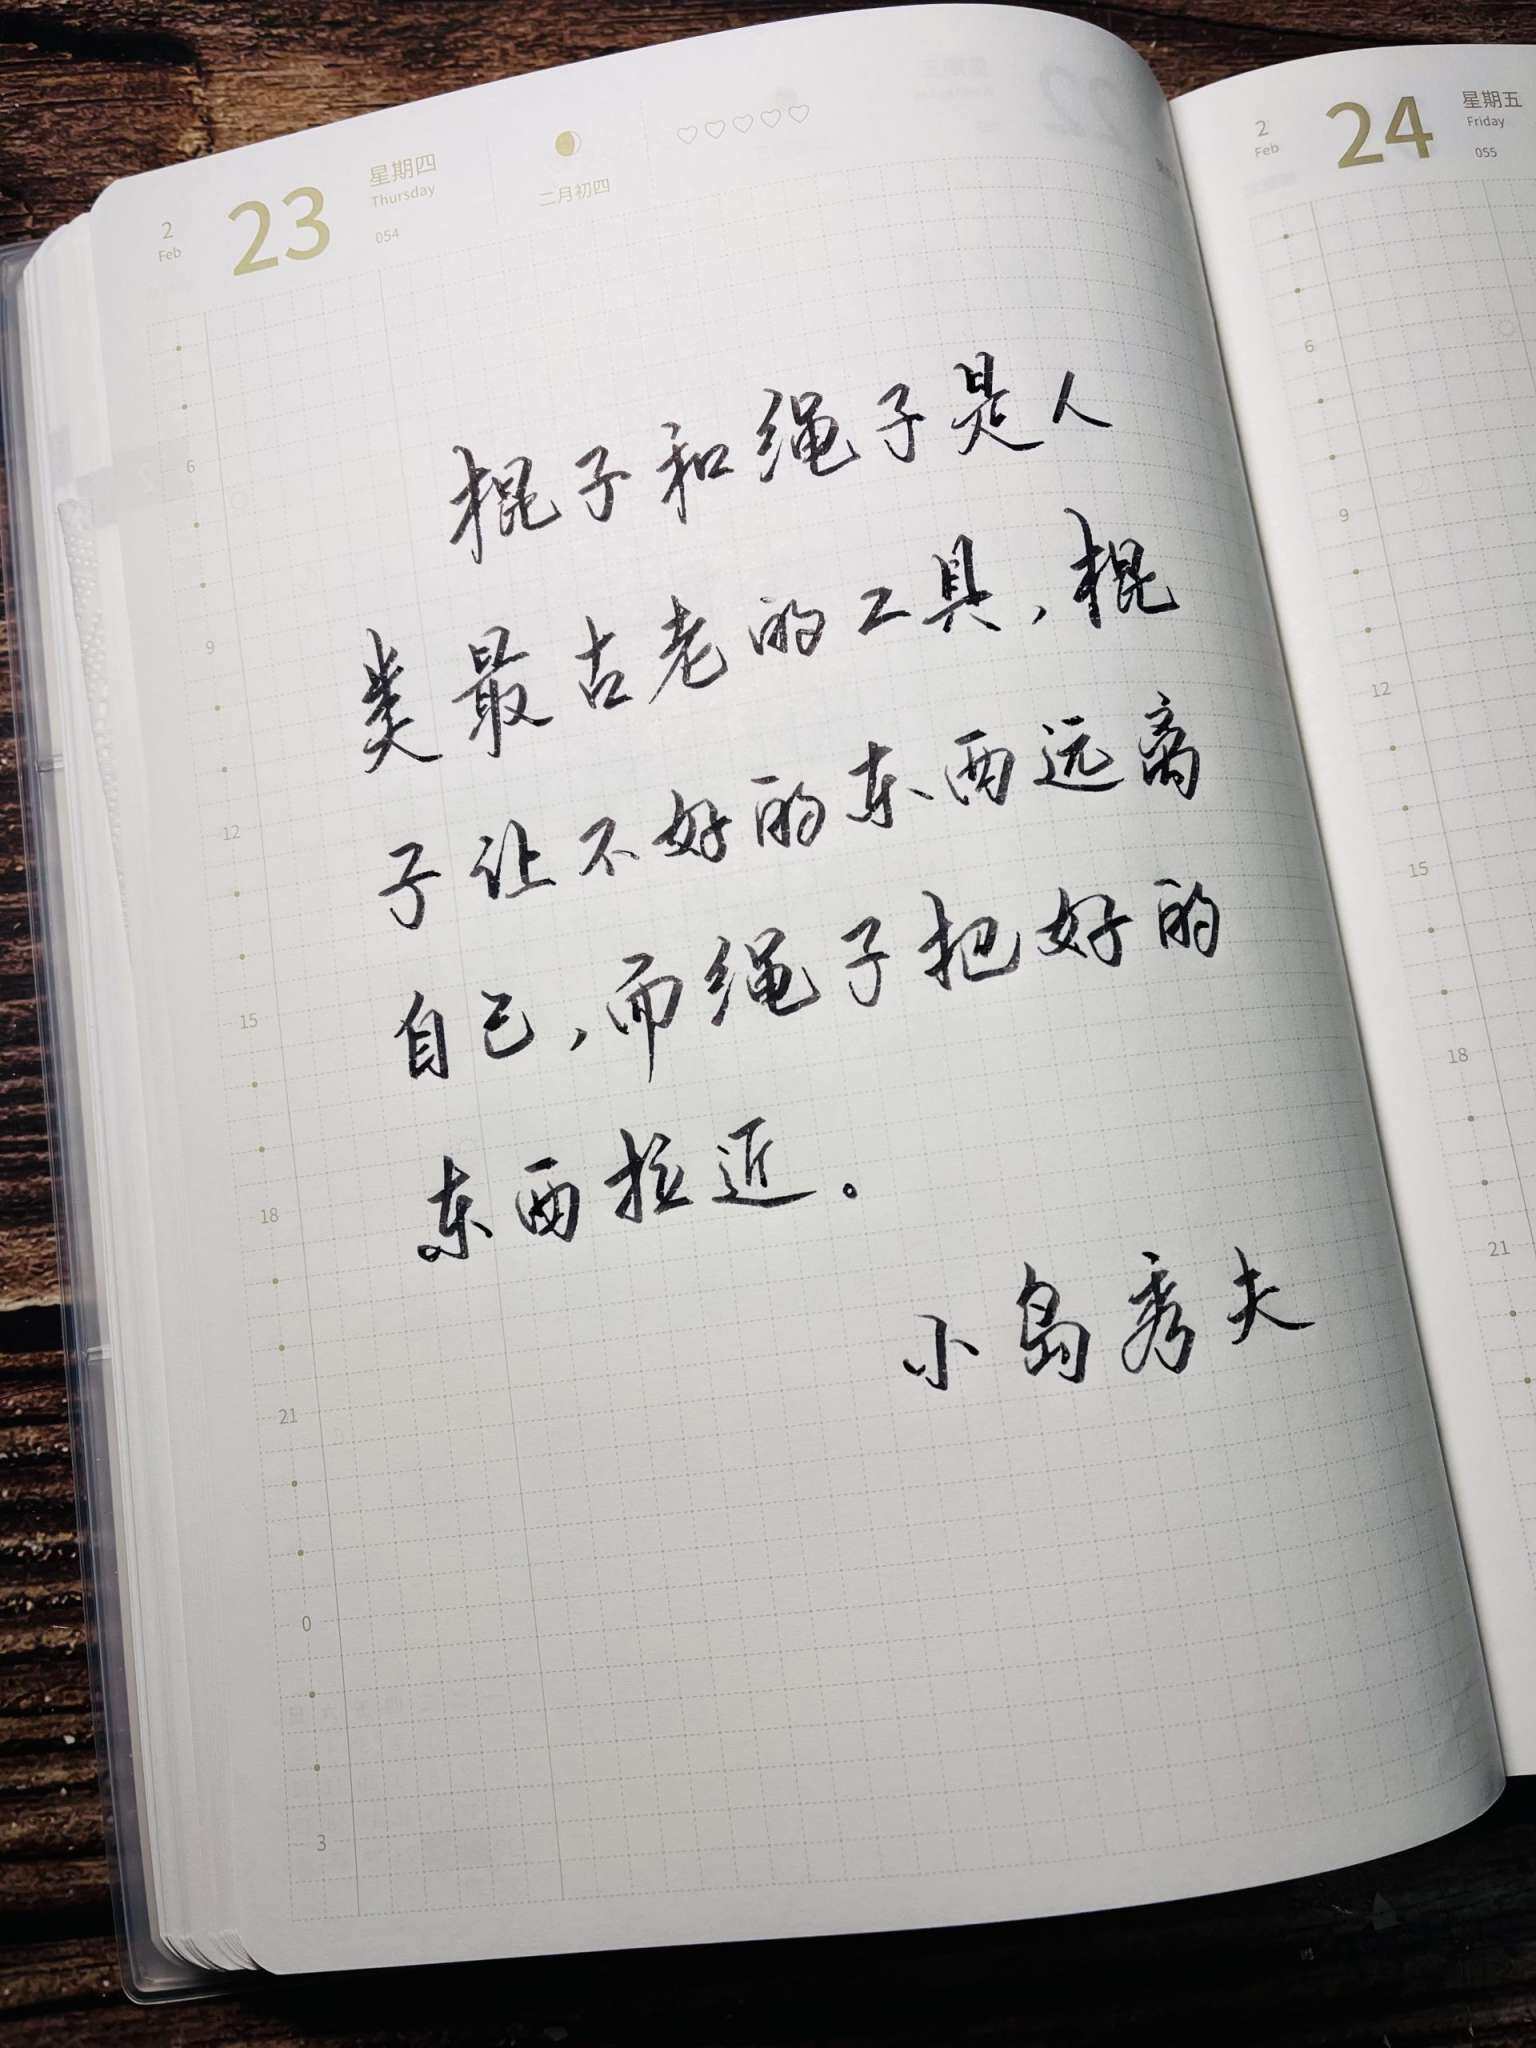 2
Feb
23
星期四
Thursday
054
二月初四
棍子和绳子是人
类最古老的工具，棍
子让不好的东西远离
自己，而绳子把好的
东西拉近。
小岛秀夫
6
9
12
15
18
21
0
3
2
Feb
24
星期五
Friday
055
6
9
12
15
18
21